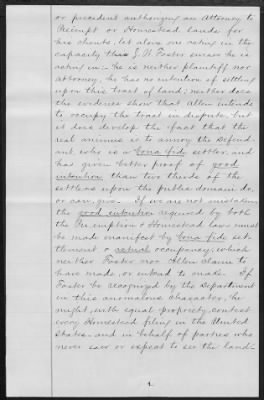 or precedent authorizing an Attorney to
Preempt or Homestead lands for
his clients, let alone one acting in the
capacity this J. W. Foster swears he is
acting in:- he is neither plaintiff nor
attorney; he has no intention of settling
upon this tract of land; neither does
the evidence show that Allen intends
to occupy the tract in dispute, but
it does develop the fact that the
real animus is to annoy the Defend
ant who is a bona fide settler, and
has given better proof of good
intention than two thirds of the
settlers upon the public domain do,
or can, give. If we are not mistaken
the good intention required by both
the Preemption & Homestead laws must
be made manifest by bona fide set-
tlement & actual occupancy, which
neither Foster nor Allen claim to
have made, or intend to make. If
Foster be recognized by the Department
in this anomalous character, he
might, with equal propriety, contest
every Homestead filing in the United
States and in behalf of parties who
never saw or expect to see the land-
4.